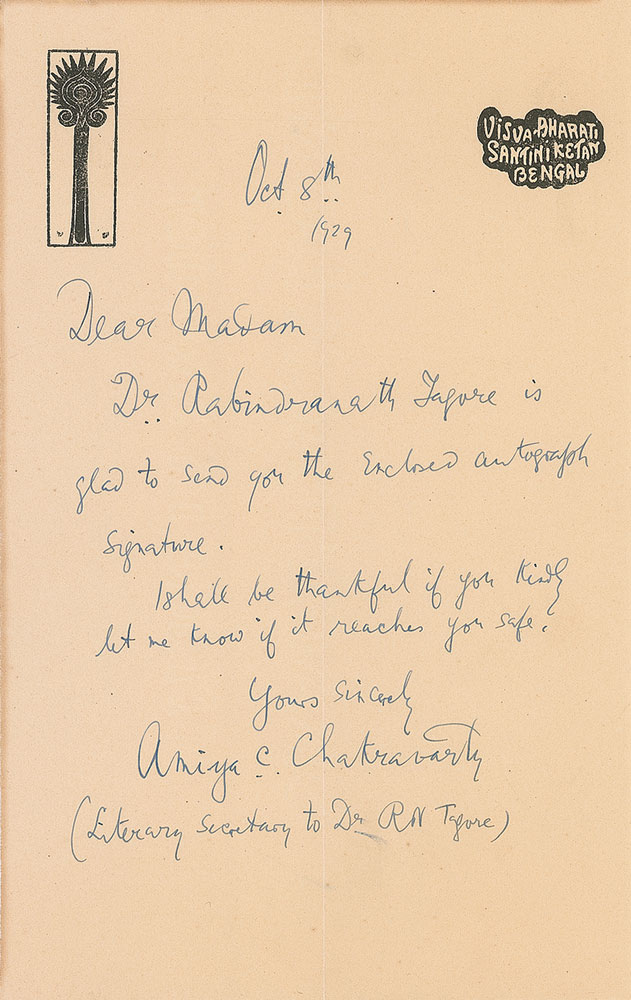 VISVA-BHARATI
SANTINIKETAN
BENGAL
Oct 8th
1929
Dear Madam
Dr. Rabindranath Tagore is
glad to send you the Enclosed autograph
signature.
I shall be thankful if you Kindly
let me know if it reaches you safe.
Yours Sincerely
Amiya C. Chakravarty
(Literary Secretary to Dr RN Tagore)